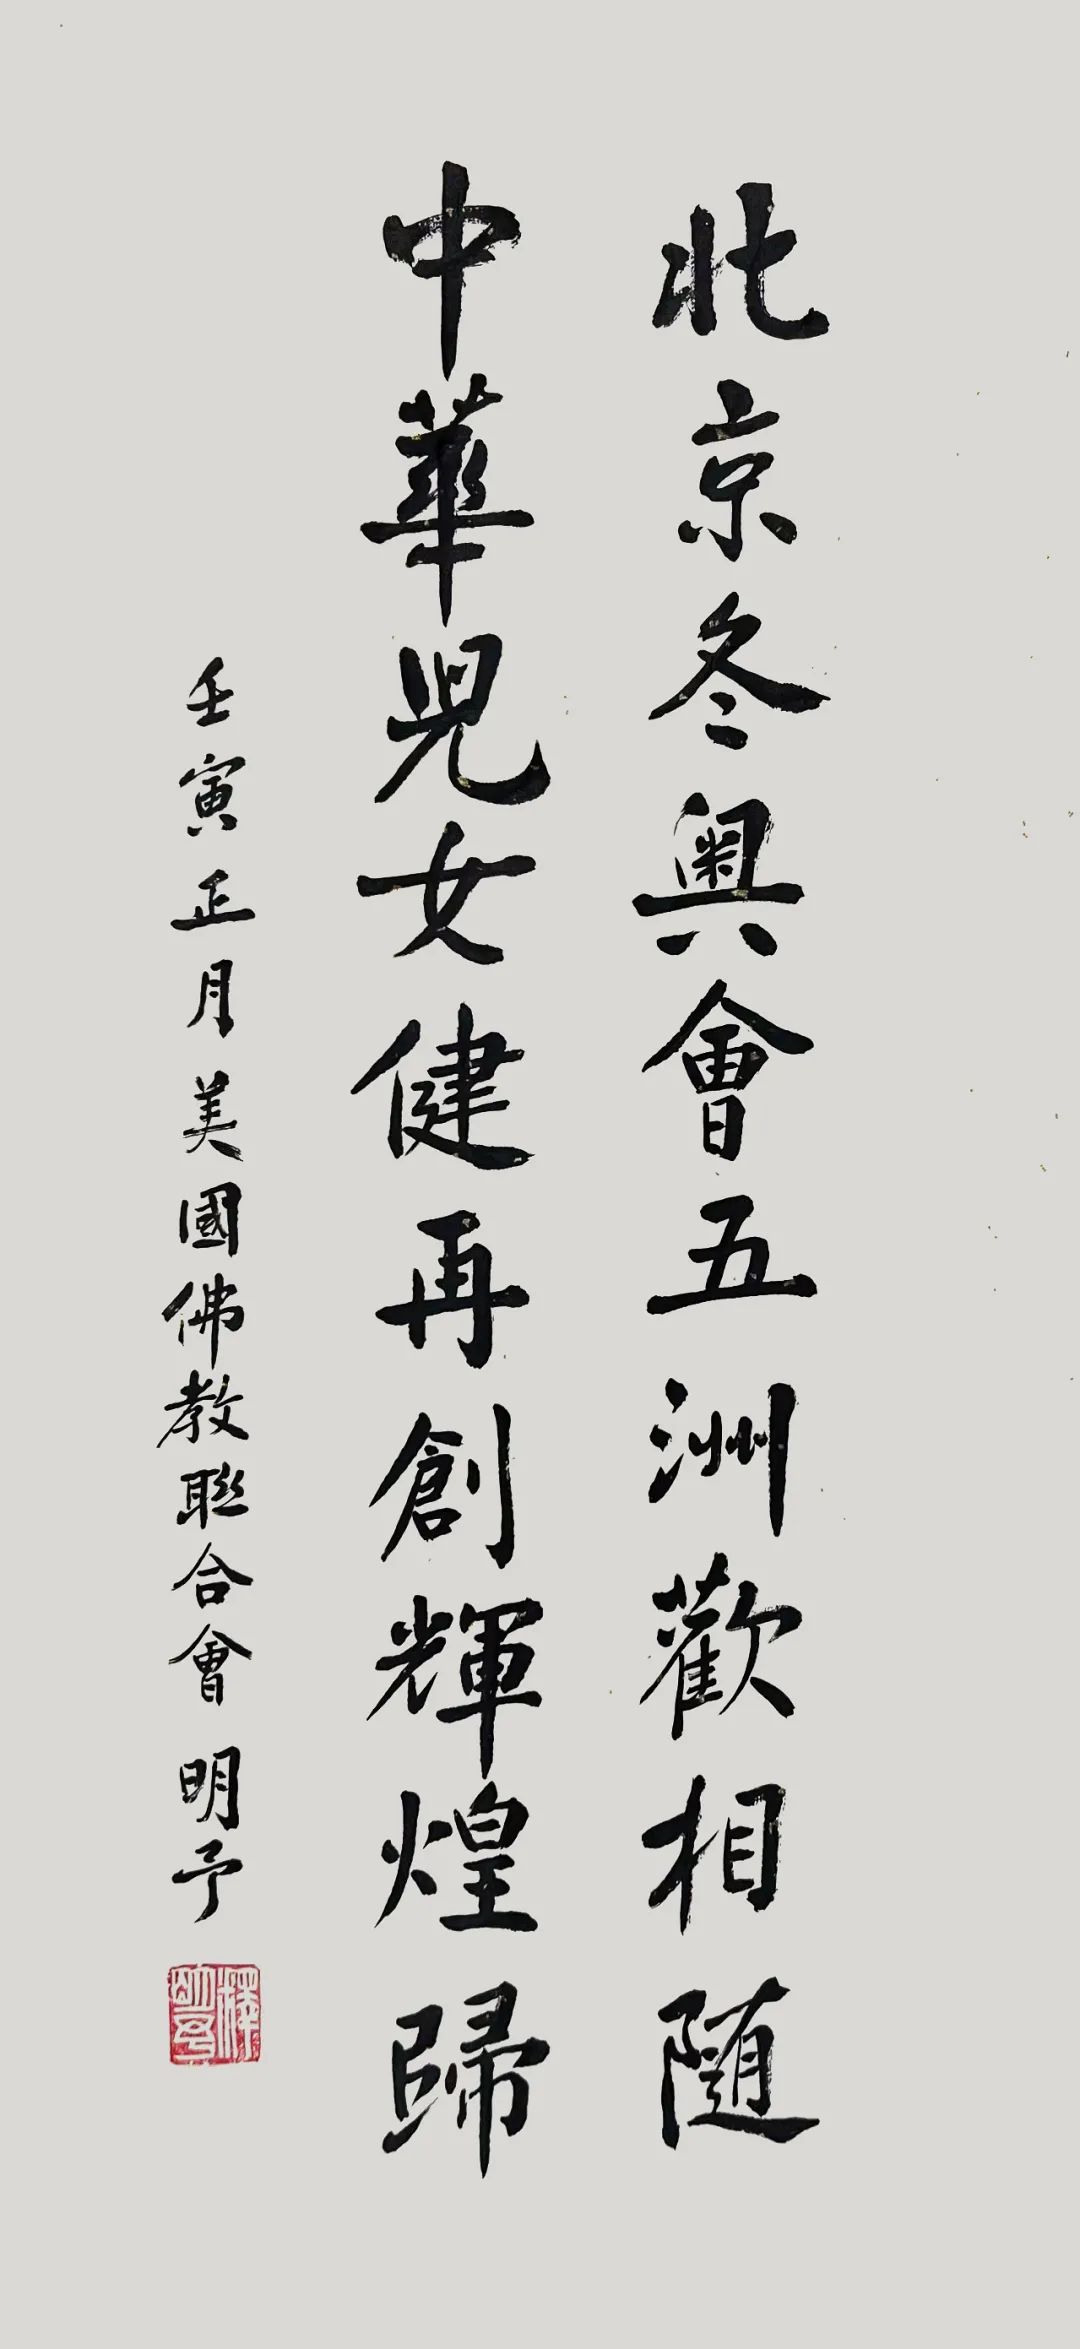 北京冬奧會五洲歡相随
中華児女健再創輝煌歸
壬寅正月美國佛教聯合會 明予
釋明予